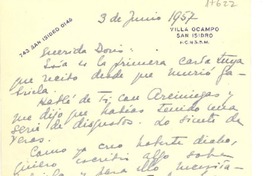 37622
743 SAN ISIDRO DIAG
3 de Junio 1957
VILLA OCAMPO
SAN ISIDRO
F.C.N.G.B.M.
Querida Doris.
Esta es la primera carta tuya
que recibo desde que murió Ga-
briela.
Hablé de ti, con Arciniegas y
me dijo que habías tenido una
serie de disgustos. Lo siento de
veras.
Como ya creo haberte dicho,
quiero escribir algo sobre